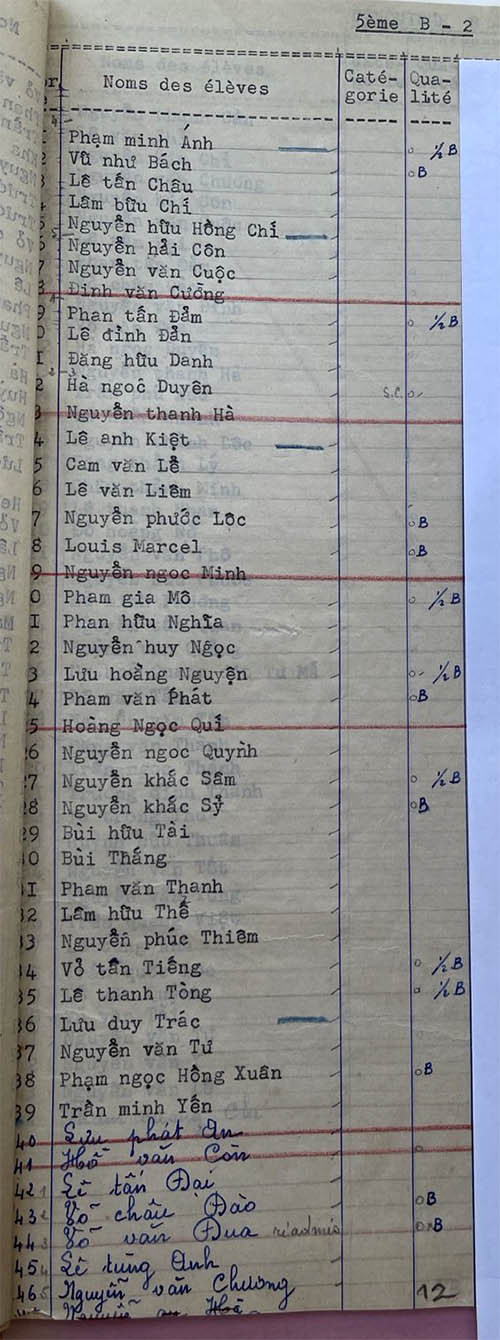 5ème B - 2
Noms des élèves Caté- Qua-
gorie lité
Phạm minh Ánh ½ B
Vũ như Bách B
3 Lê tấn Châu
4 Lâm bữu Chí
5 Nguyễn hữu Hồng Chí
Nguyễn hải Côn
7 Nguyễn văn Cuộc
8 Đinh văn Cường
9 Phan tấn Đảm ½ B
0 Lê đình Đẩn
I Đặng hữu Danh
2 Hà ngoc Duyên S.C.
3 Nguyễn thanh Hà
4 Lê anh Kiệt
5 Cam văn Lễ
6 Lê văn Liêm
7 Nguyễn phước Lộc B
8 Louis Marcel B
9 Nguyễn ngoc Minh
0 Pham gia Mô ½ B
I Phan hữu Nghĩa
2 Nguyễn huy Ngọc
3 Lưu hoàng Nguyện ½ B
4 Pham văn Phát B
5 Hoàng Ngọc Quí
26 Nguyễn ngoc Quỳnh
27 Nguyễn khắc Sâm ½ B
28 Nguyễn khắc Sỷ B
29 Bùi hữu Tài
30 Bùi Thắng
3I Pham văn Thạnh
32 Lâm hữu Thế
33 Nguyễn phúc Thiêm
34 Vỏ tấn Tiếng ½ B
35 Lê thanh Tòng ½ B
36 Lưu duy Trác
37 Nguyễn văn Tư
38 Phạm ngọc Hồng Xuân B
39 Trần minh Yến
40 Lưu phát An
41 Hồ văn Còn
42 1 Lê tấn Đại
43 2 Võ châu Đào B
44 3 Võ văn Đua réadmis B
45 4 Lê tùng Anh
46 5 Nguyễn văn Chương 12
Nguyễn